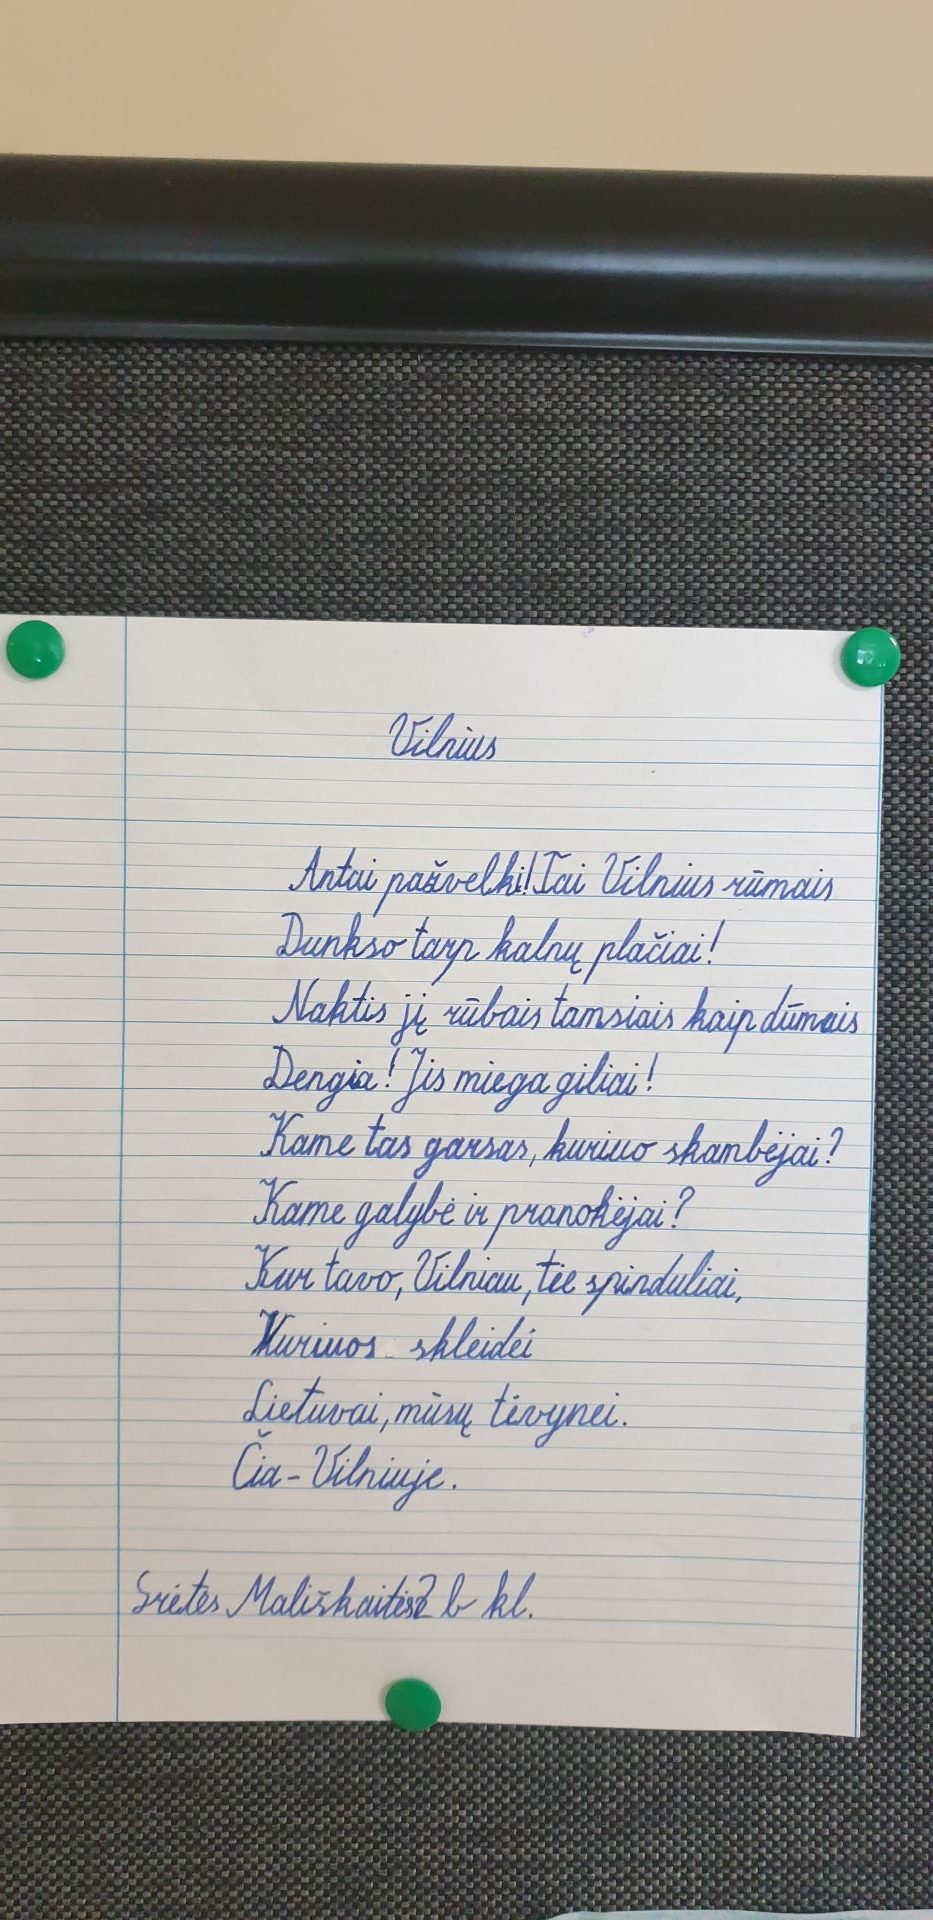 Vilnius
Antai pažvelki! Tai Vilnius rūmais
Dunkso tarp kalnų plačiai!
Naktis jį rūbais tamsiais kaip dūmais
Dengia! Jis miega giliai!
Kame tas garsas, kuriuo skambėjai?
Kame galybė ir pranokėjai?
Kur tavo, Vilniau, tie spinduliai,
Kuriuos skleidei
Lietuvai, mūsų tėvynei.
Čia - Vilniuje.
Grėtės Mališkaitės 2 b kl.